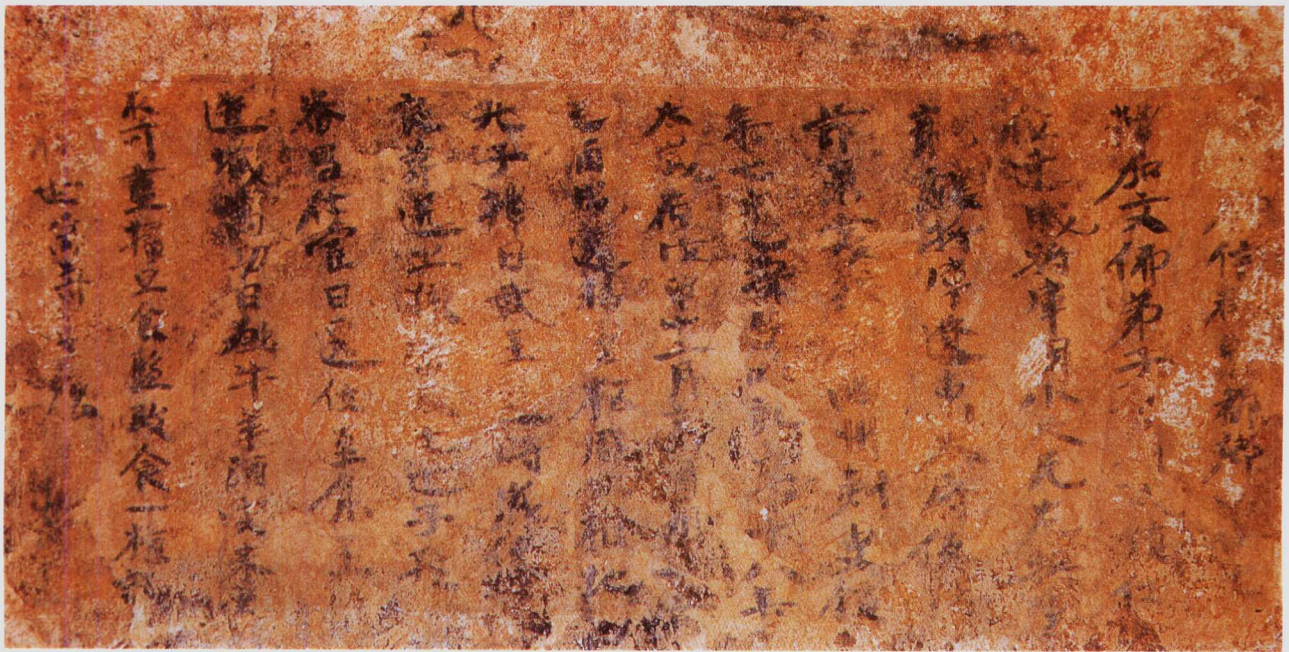 信都縣都鄕
釋加文佛弟子
位建威將軍國小大兄左將軍
龍驤將軍遼東太守使持
節東夷校尉幽州刺史鎭
年七十七薨焉以永樂十八年
太歲在戊申十二月辛酉朔廿五日
乙酉成遷移玉柩周公相地
孔子擇日武王選時歲使一
良葬送之後富及七世子孫
番昌仕宦日遷位至侯王
造萬功日煞牛羊酒宍米粲
不可盡掃旦食鹽豉食一椋記
後世寓寄無疆